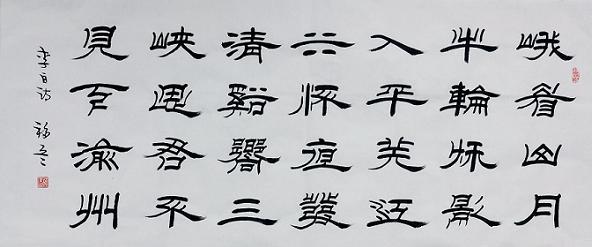 峨眉山月
半輪秋影
入平羌江
水流夜發
清谿嚮三
峽思君不
見下渝州
李白诗